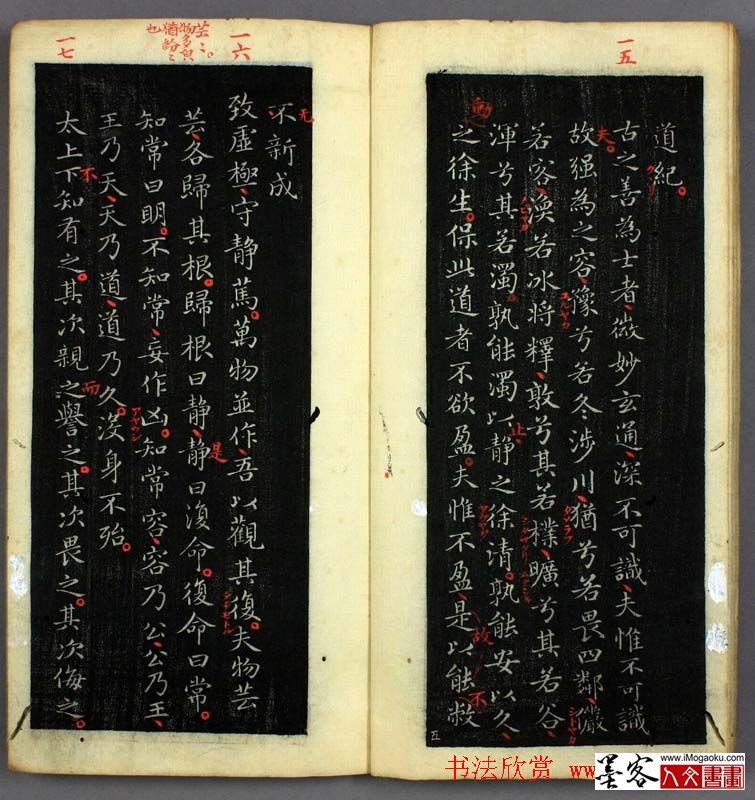 一五
道紀
古之善為士者微妙玄通深不可識夫惟不可識
故强為之容豫兮若冬涉川猶兮若畏四鄰儼
若客渙若冰將釋敦兮其若樸曠兮其若谷
渾兮其若濁孰能濁以靜之徐清孰能安以久
之徐生保此道者不欲盈夫惟不盈是以能敝
五
一六
不新成
致虛極守靜篤萬物並作吾以觀其復夫物芸
芸各歸其根歸根曰靜靜曰復命復命曰常
知常曰明不知常妄作凶知常容容乃公公乃王
王乃天天乃道道乃久没身不殆
一七
太上下知有之其次親之譽之其次畏之其次侮之
书法欣赏 www
www.iMogaoku.com
墨客
人文書畫